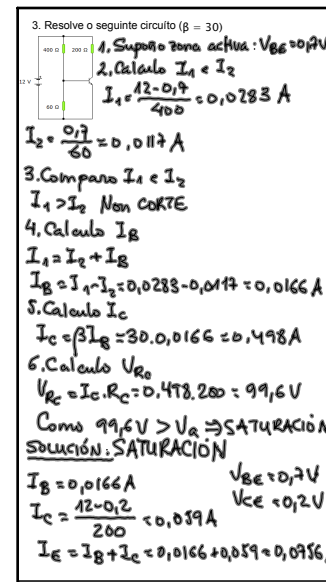 3. Resolve o seguinte circuíto (β = 30)
400 Ω 200 Ω
12 V
60 Ω
1. Supoño zona activa: VBE=0,7V
2. Calculo I1 e I2
I1 = (12-0,7)/400 = 0,0283 A
I2 = 0,7/60 = 0,0117 A
3. Comparo I1 e I2
I1 > I2 Non CORTE
4. Calculo IB
I1 = I2 + IB
IB = I1 - I2 = 0,0283 - 0,0117 = 0,0166 A
5. Calculo Ic
Ic = βIB = 30.0,0166 = 0,498A
6. Calculo URc
URc = Ic.Rc = 0,498.200 = 99,6 V
Como 99,6V > Va ⇒ SATURACIÓN
SOLUCIÓN: SATURACIÓN
IB = 0,0166 A VBE = 0,7V
Ic = (12-0,2)/200 = 0,059A VCE = 0,2V
IE = IB + Ic = 0,0166 + 0,059 = 0,0756